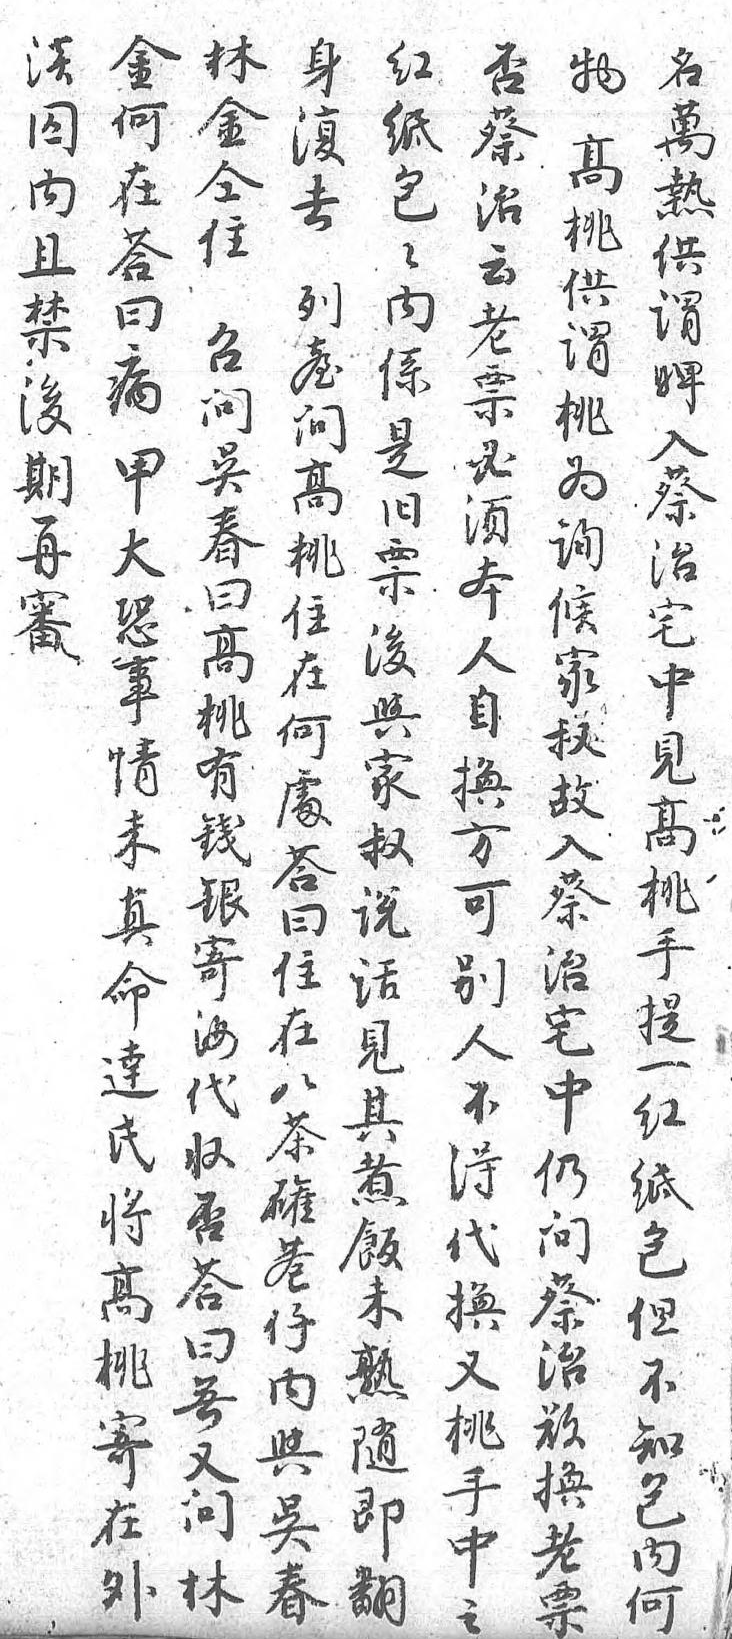 名萬熱供謂婢入蔡治宅中見髙桃手提一红紙包但不知包内何
物　髙桃供謂桃为詢候家叔故入蔡治宅中仍问蔡治欲换老票
否蔡治云老票必須本人自换方可别人不得代换又桃手中之
红紙包〻内係是旧票後與家叔说话見其煮飯未熟随即翻
身復去　列臺问髙桃住在何處荅曰住在八茶礭巷仔内與吳春
林金仝住　召问吳春曰髙桃有錢銀寄汝代収否荅曰無又问林
金何在荅曰病甲大恐事情未真命達氏将髙桃寄在外
淡囚内且禁後期再審